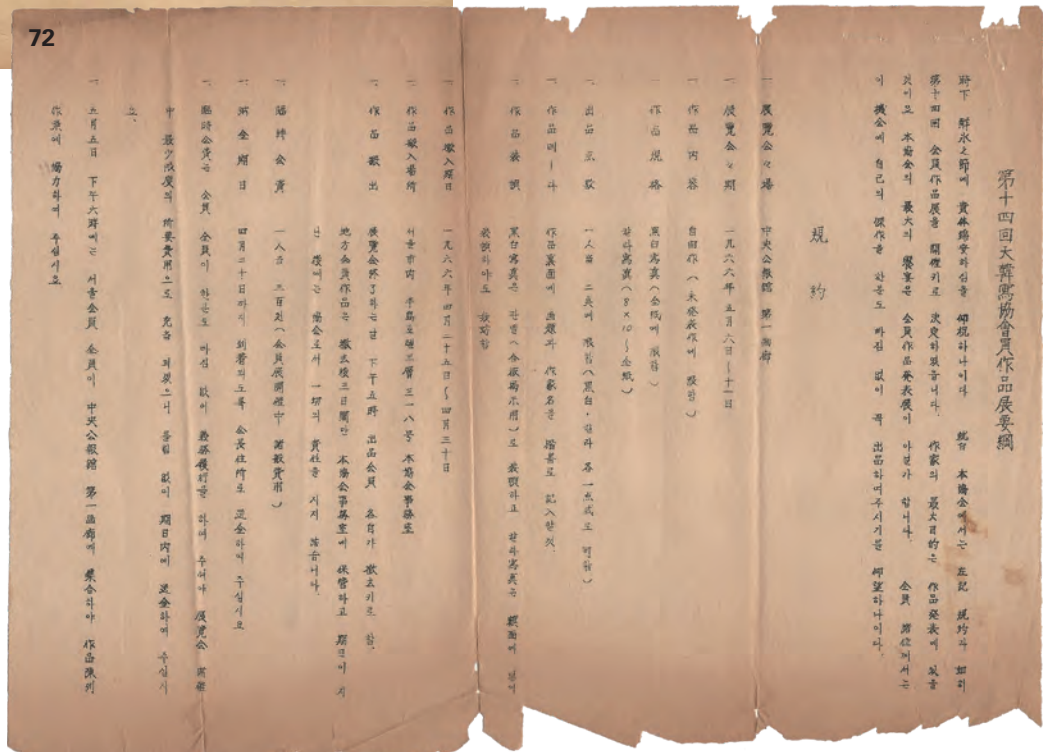 72
第十四回大韓寫協會員作品展要綱
時下 鮮氷之節에 貴体錦安하심을 仰祝하나이다 就홈 本協会에서는 左記 規約과 如히
第十四回 会員作品展을 開催키로 決定하였읍니다. 作家의 最大目的은 作品発表에 있을
것이요 本協会의 最大의 饗宴은 会員作品発表展이 아닐가 합니다. 会員 諸位께서는
이 機会에 自己의 傑作을 한분도 빠짐 없이 꼭 出品하여주시기를 仰望하나이다.
規約
一 展覽会々場 中央公報館 第一画廊
一 展覽会々期 一九六六年 五月 六日〜十一日
一 作品内容 自由作(未発表作에 限함)
一 作品規格 黑白寫真(全紙에 限함)
칼라寫真(8×10〜全紙)
一 出品点数 一人当 二点에 限함(黑白・칼라 各一点式도 可함)
一 作品 裏面에 画題과 作家名을 楷書로 記入할것.
一 作品装幀 黑白寫真은 판넬로 装幀하고 칼라寫真은
装幀하야도 無妨함
一 作品搬入期日 一九六六年 四月二十五日〜四月三十日
一 作品搬入場所 서울市内 半島호텔三層 三一八号 本協会事務室
一 作品搬出 展覽会終了하는날 下午五時 出品会員 各自가 搬出키로 함.
地方会員作品은 搬出後三日間만 本協会事務室에 保管하고 期日이 지
난 後에는 協会로서 一切의 責任을 지지 않습니다.
一 臨時会費 一人当 三百원(会員展開催中 諸般費用)
一 納金期日 四月二十日까지 到着되도록 会長住所로 送金하여 주십시요
一 臨時会費는 会員 全員이 한분도 빠짐 없이 義務履行을 하여 주셔야 展覽会 開催
中 最少限度의 所要費用으로 充当 되겠으니 틀림 없이 期日内에 送金하여 주십시
요.
一 五月五日 下午六時에는 서울会員 全員이 中央公報館 第一画廊에 集合하야 作品陳列
作業에 協力하여 주십시요